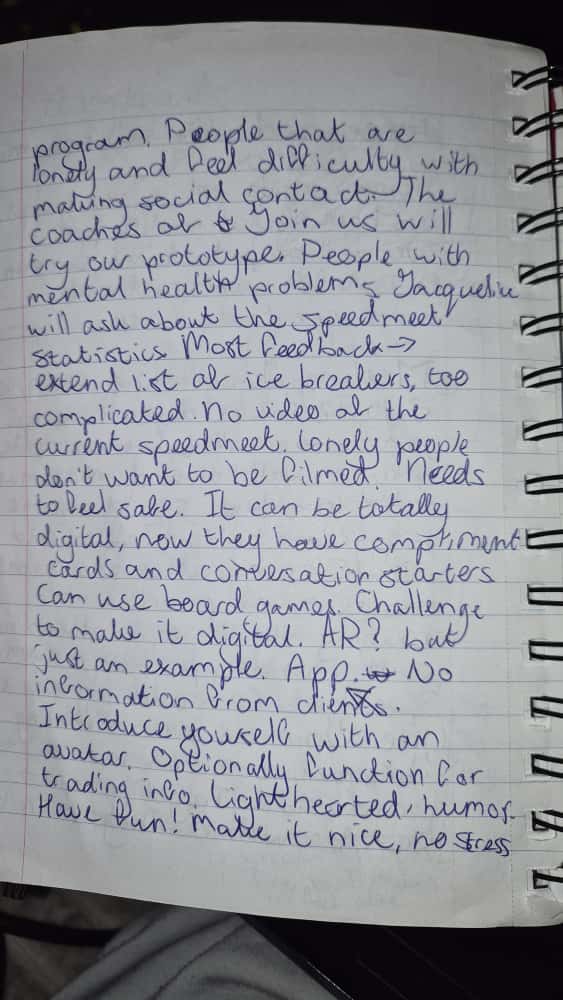 program. People that are
lonely and feel difficulty with
making social contact. The
coaches of Join us will
try our prototype. People with
mental health problems Jacqueline
will ask about the speedmeet
statistics Most feedback →
extend list of ice breakers, too
complicated. no video of the
current speedmeet. lonely people
don't want to be filmed. Needs
to feel safe. It can be totally
digital, now they have compliment
cards and conversation starters
Can use board games. Challenge
to make it digital. AR? but
just an example. App. No
information from clients.
Introduce youself with an
avatar. Optionally function for
trading info. Light hearted, humor.
Have fun! Make it nice, no stress